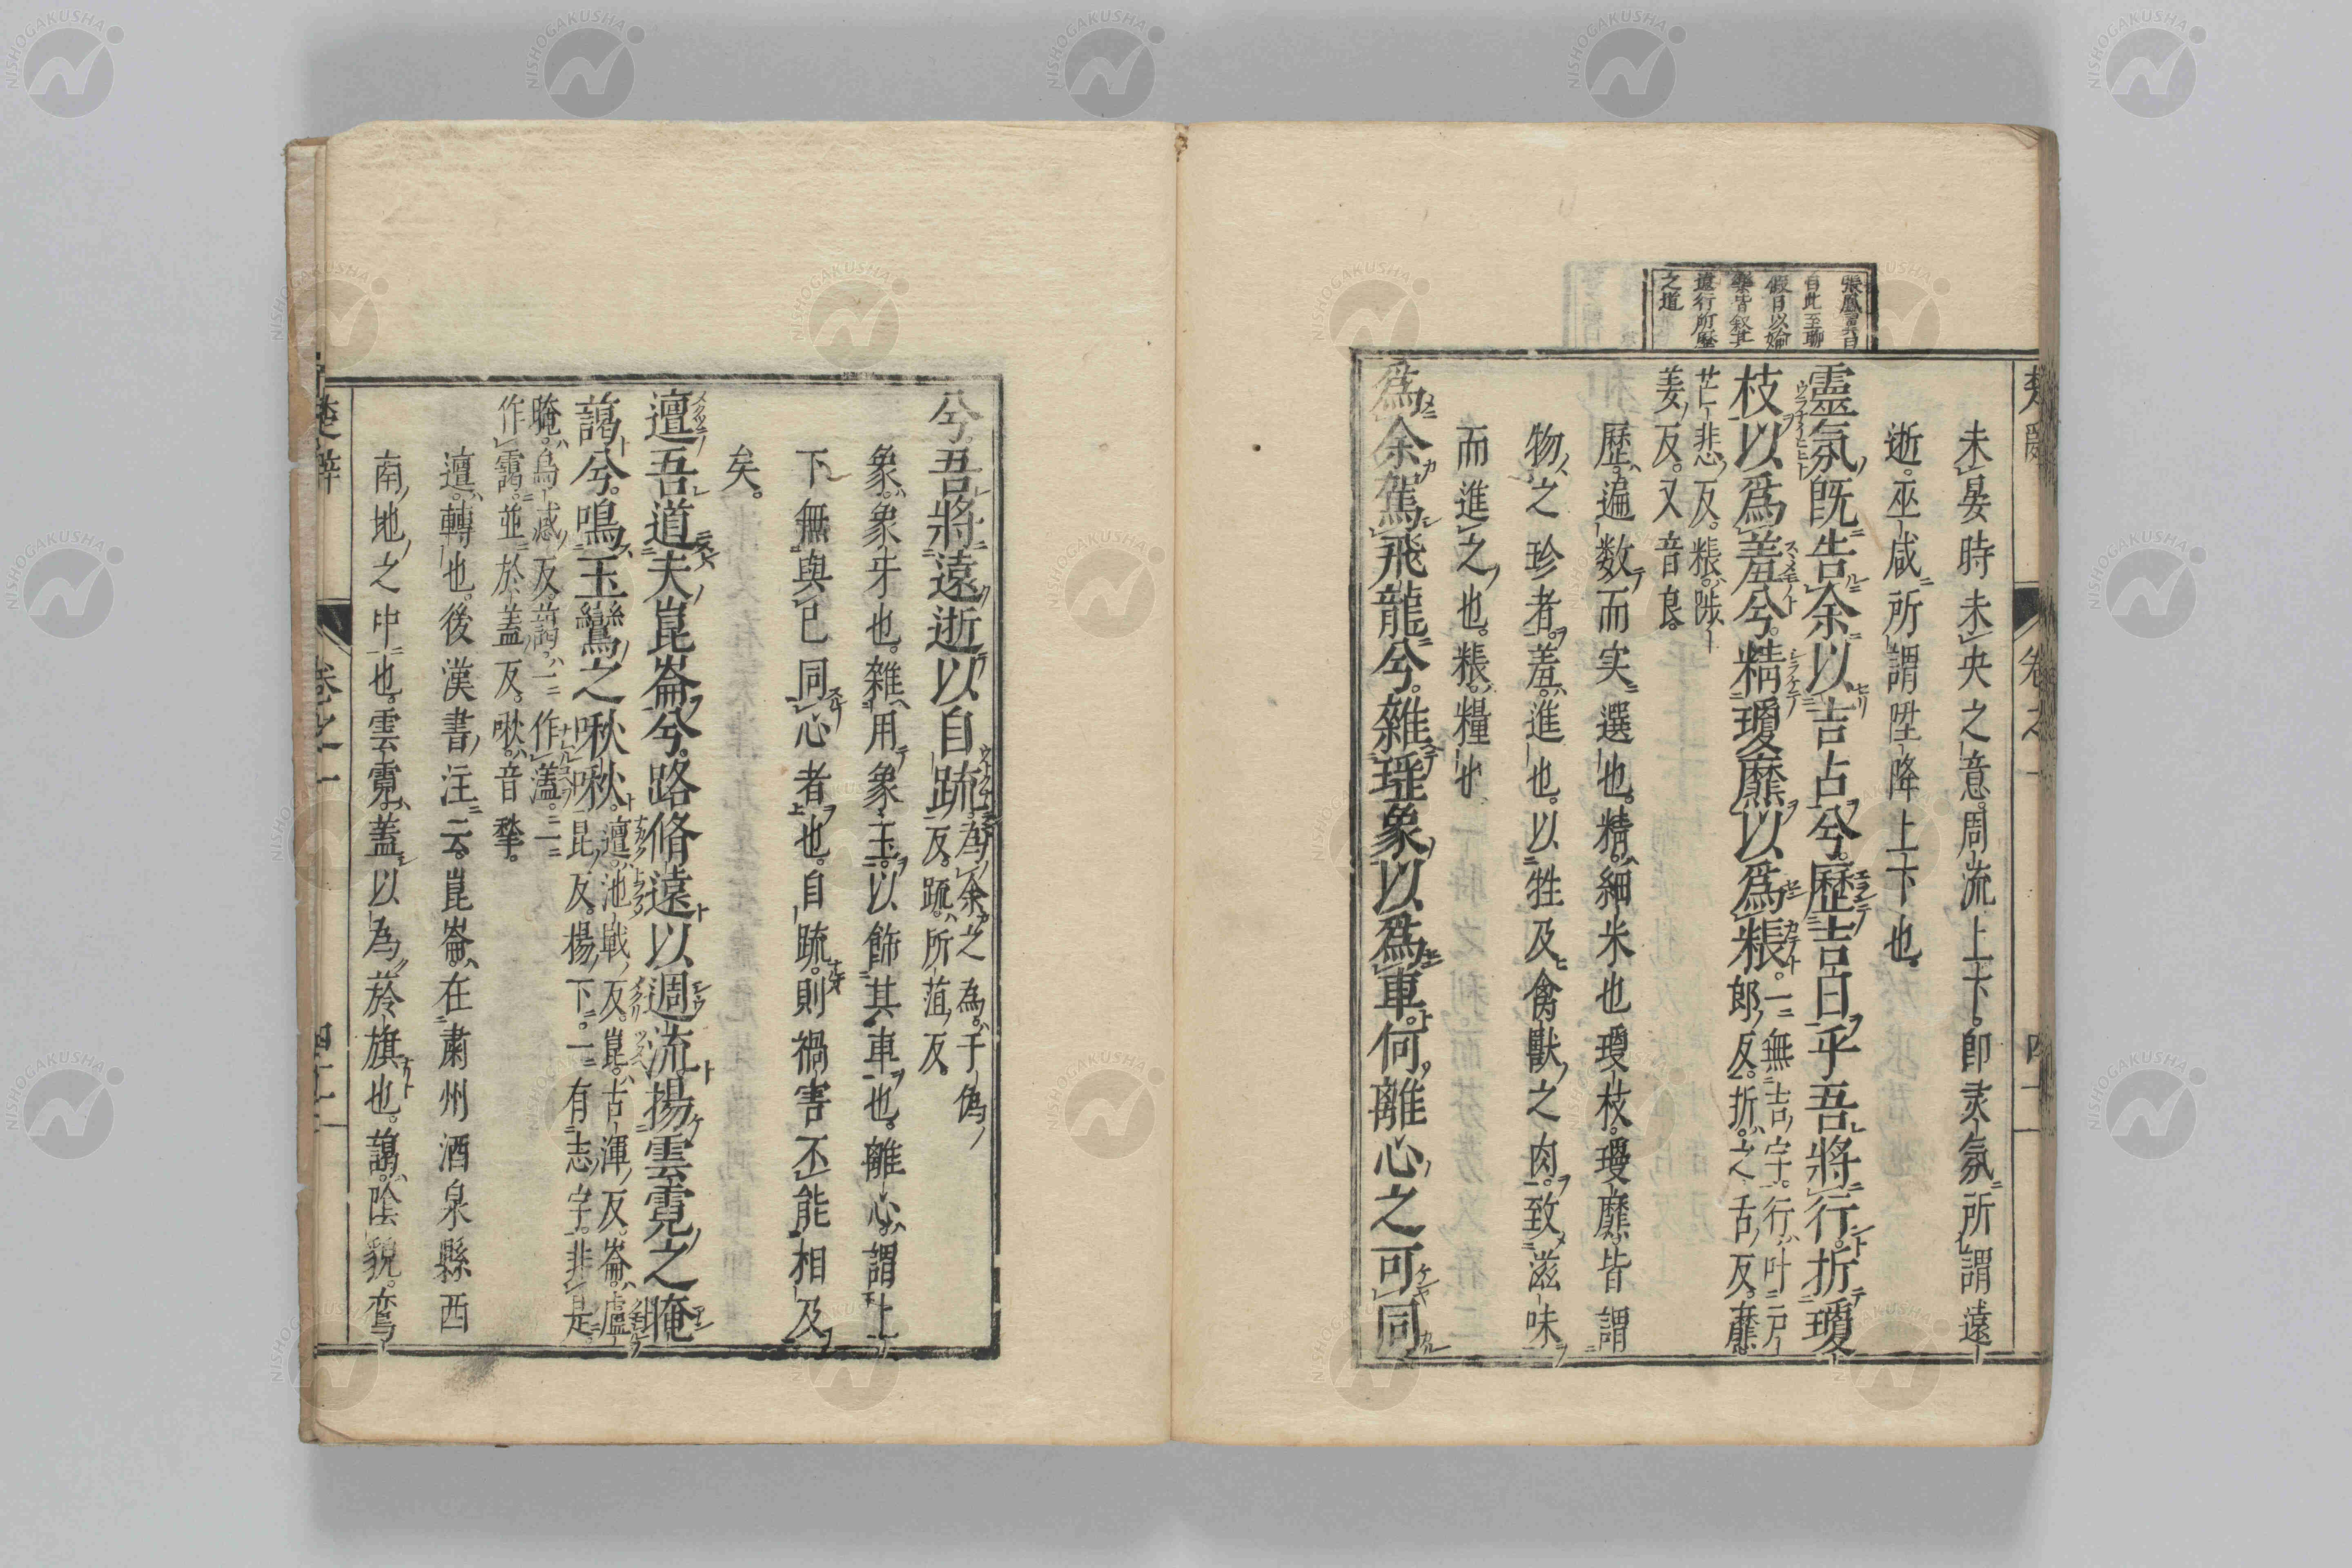 張鳳翼曰
自此至聊
假日以婾
樂皆叙其
遠行所歷
之道
未晏時未央之意周流上下。即灵氛所謂遠
逝。巫咸所謂陞降上下也。
靈氛既告余以吉占兮。歷吉日乎吾將行。折瓊
枝以爲羞兮。精瓊爢以爲粻。一無吉字。行叶戸
郎反。折之舌反。爢
芒悲反。粻陟
姜反。又音良。
歷遍数而実選也。精細米也瓊枝。瓊爢。皆謂
物之珍者。羞。進也。以牲及禽獸之肉。致滋味
而進之也。粻。糧也
爲余駕飛龍兮。雜瑤象以爲車。何離心之可同
兮。吾將遠逝以自疏。為余之為于偽
反。疏所菹反。
象。象牙也。雜用象玉。以飾其車也。離心。謂上
下無與己同心者也。自疏。則禍害不能相及
矣。
邅吾道夫崑崙兮。路脩遠以週流。揚雲霓之晻
藹兮。鳴玉鸞之啾啾。邅。池戰反。崑。古渾反。崙。盧
昆反。揚下。一有志字。非是。
晻。烏感反。藹。一作蓋。一
作靄。並於蓋反。啾。音揫。
邅。轉也。後漢書注云。崑崙。在肅州酒泉縣西
南地之中也。雲霓。蓋以為於旗也。藹。陰貌。鸞
楚辭
卷之一